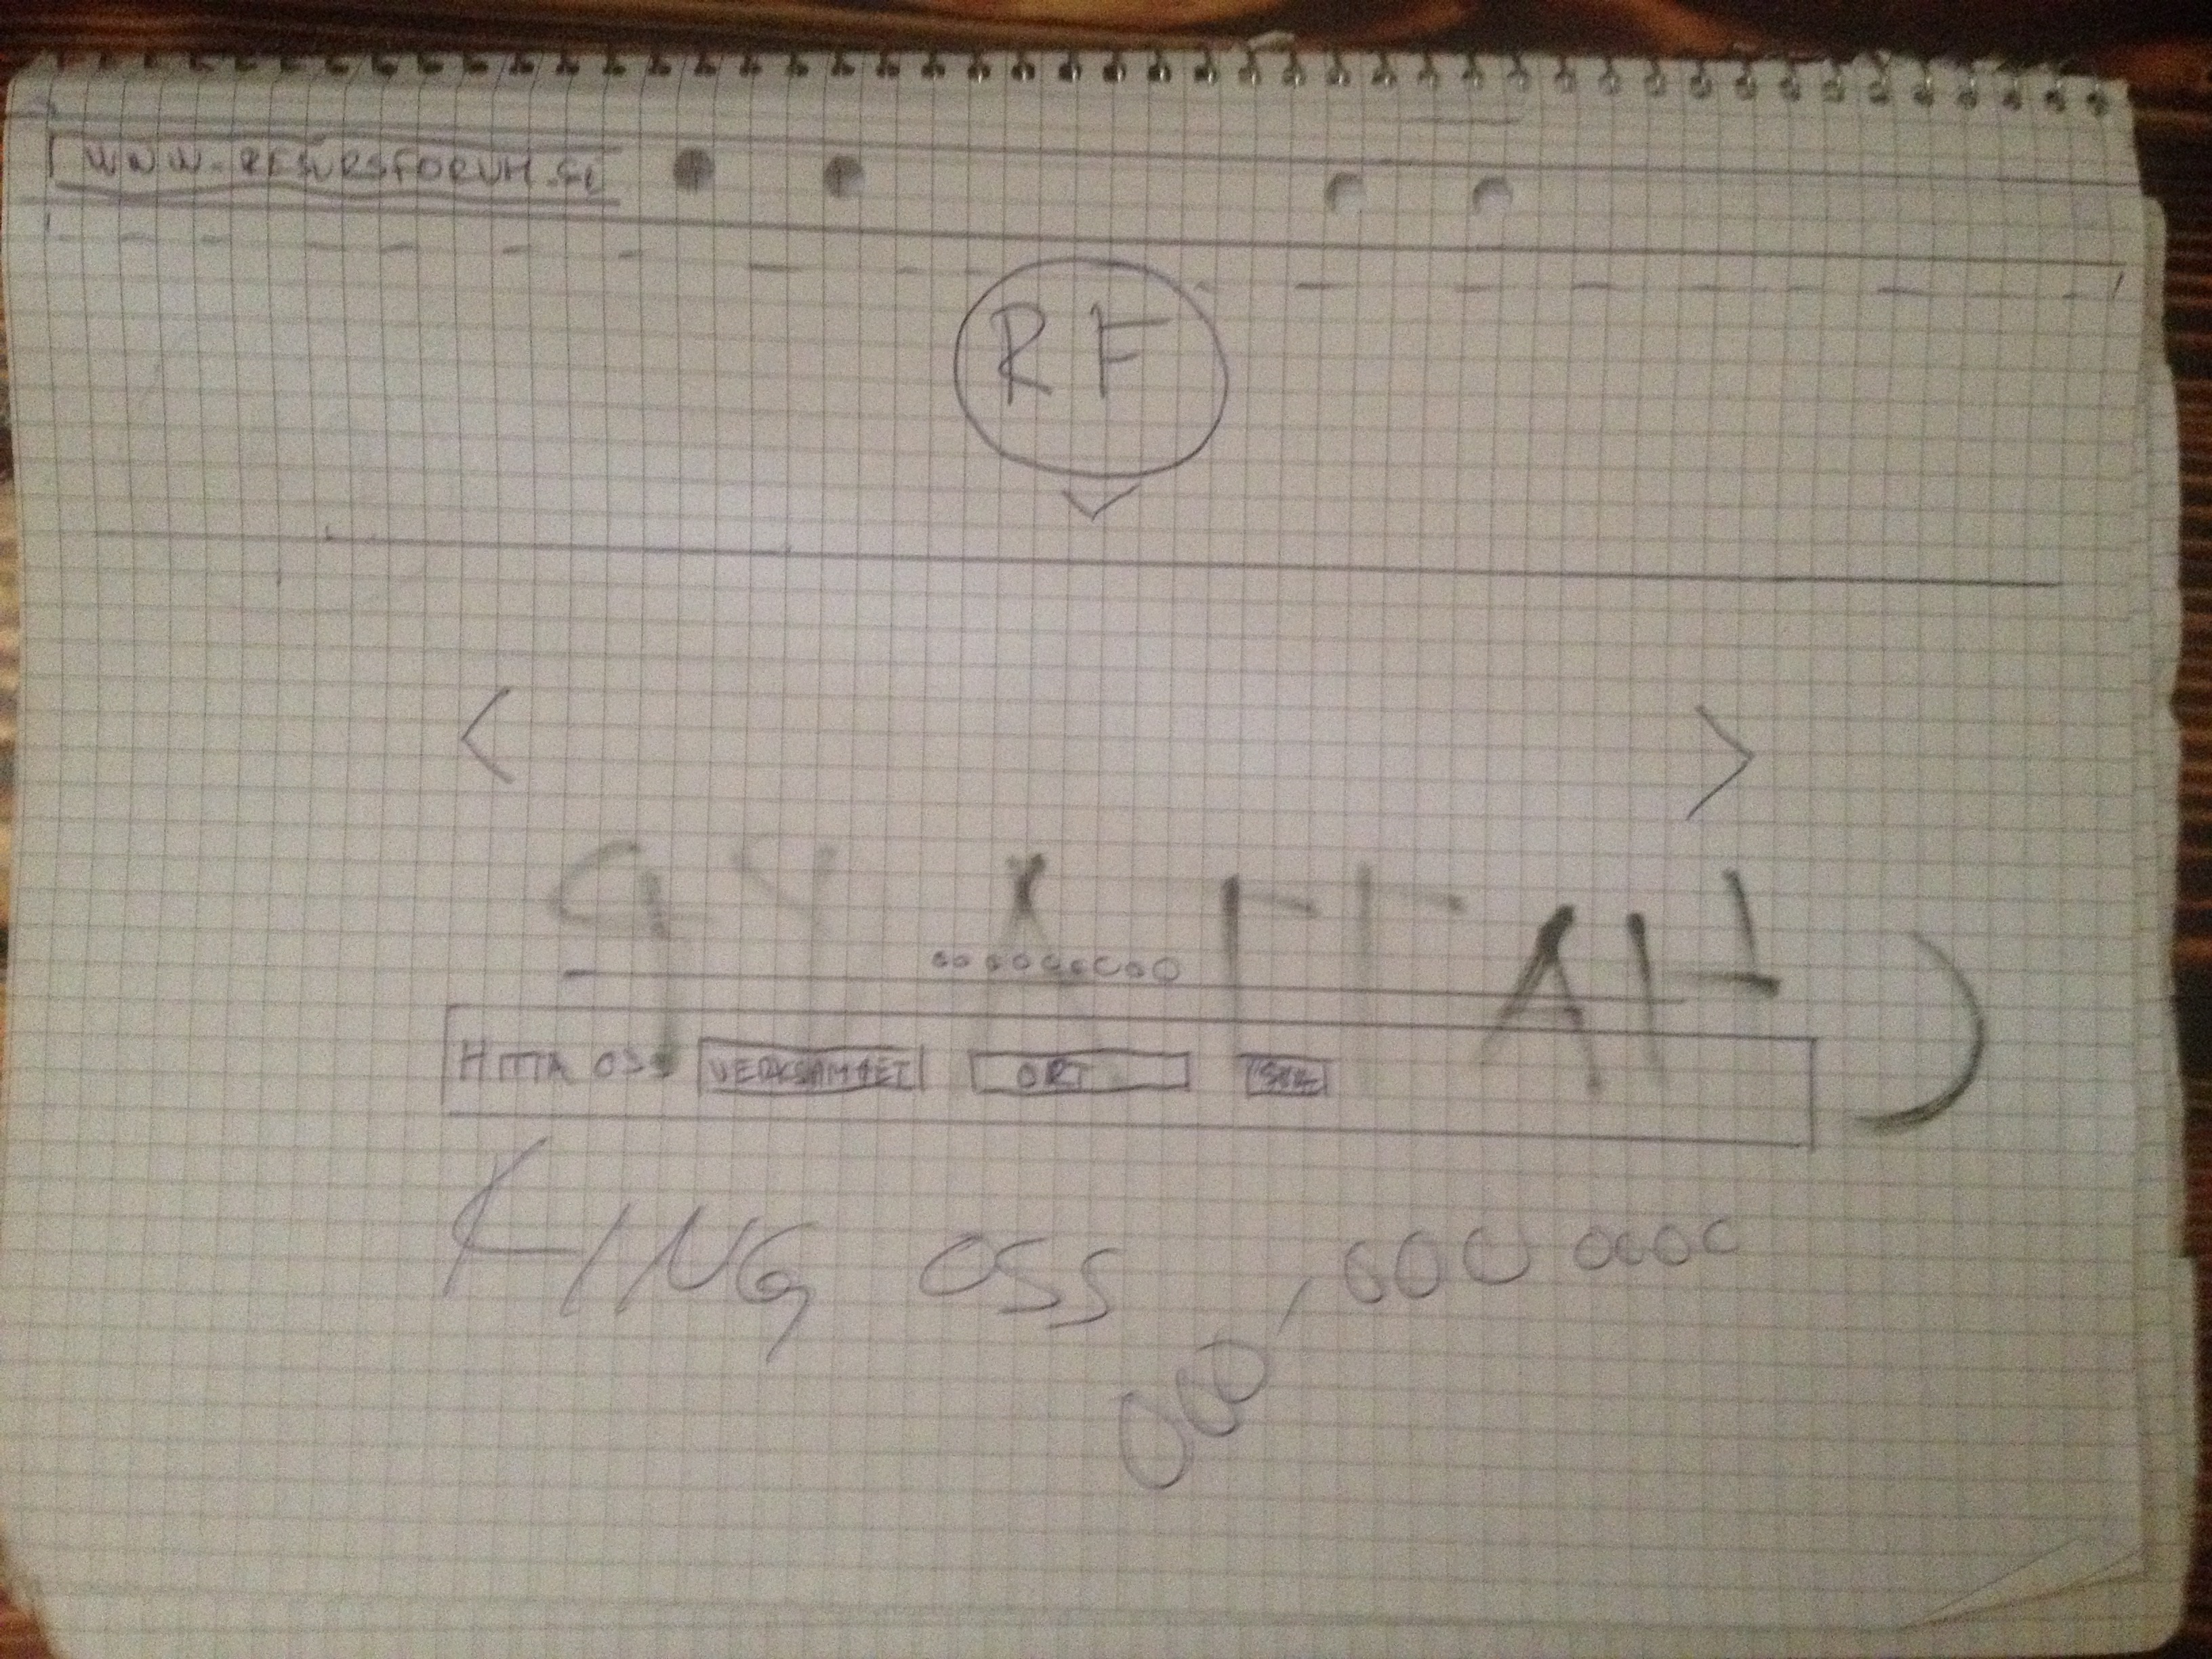 WWW.RESURSFORUM.SE
RF
< >
HITTA OSS VERKSAMHET ORT SÖK
RING OSS
000, 000 0000